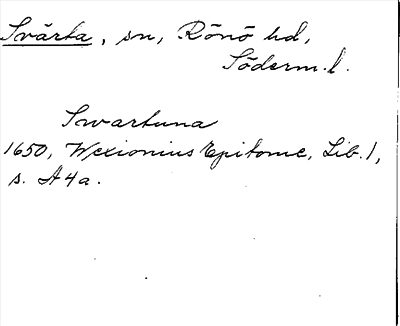 Svärta, sn, Rönö hd,
Söderm.l.
Swartuna
1650, Wexionius Epitome, Lib. 1,
s. A4a.